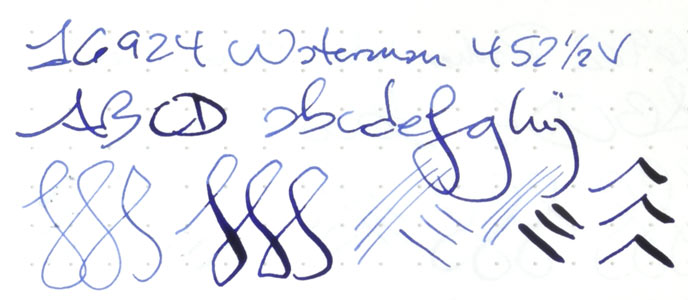 16924 Waterman 452½V
ABCD abcdefghij